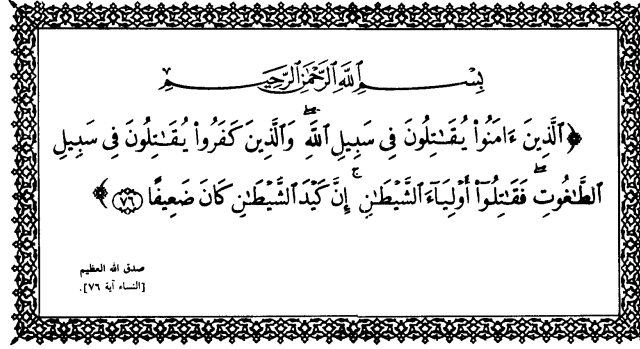 بِسْمِ اللَّهِ الرَّحْمَٰنِ الرَّحِيمِ
﴿ الَّذِينَ ءَامَنُوا۟ يُقَٰتِلُونَ فِى سَبِيلِ اللَّهِ ۖ وَالَّذِينَ كَفَرُوا۟ يُقَٰتِلُونَ فِى سَبِيلِ
الطَّٰغُوتِ ۖ فَقَٰتِلُوٓا۟ أَوْلِيَآءَ الشَّيْطَٰنِ ۚ إِنَّ كَيْدَ الشَّيْطَٰنِ كَانَ ضَعِيفًا ٧٦ ﴾
صدق الله العظيم
[النساء آية ٧٦].